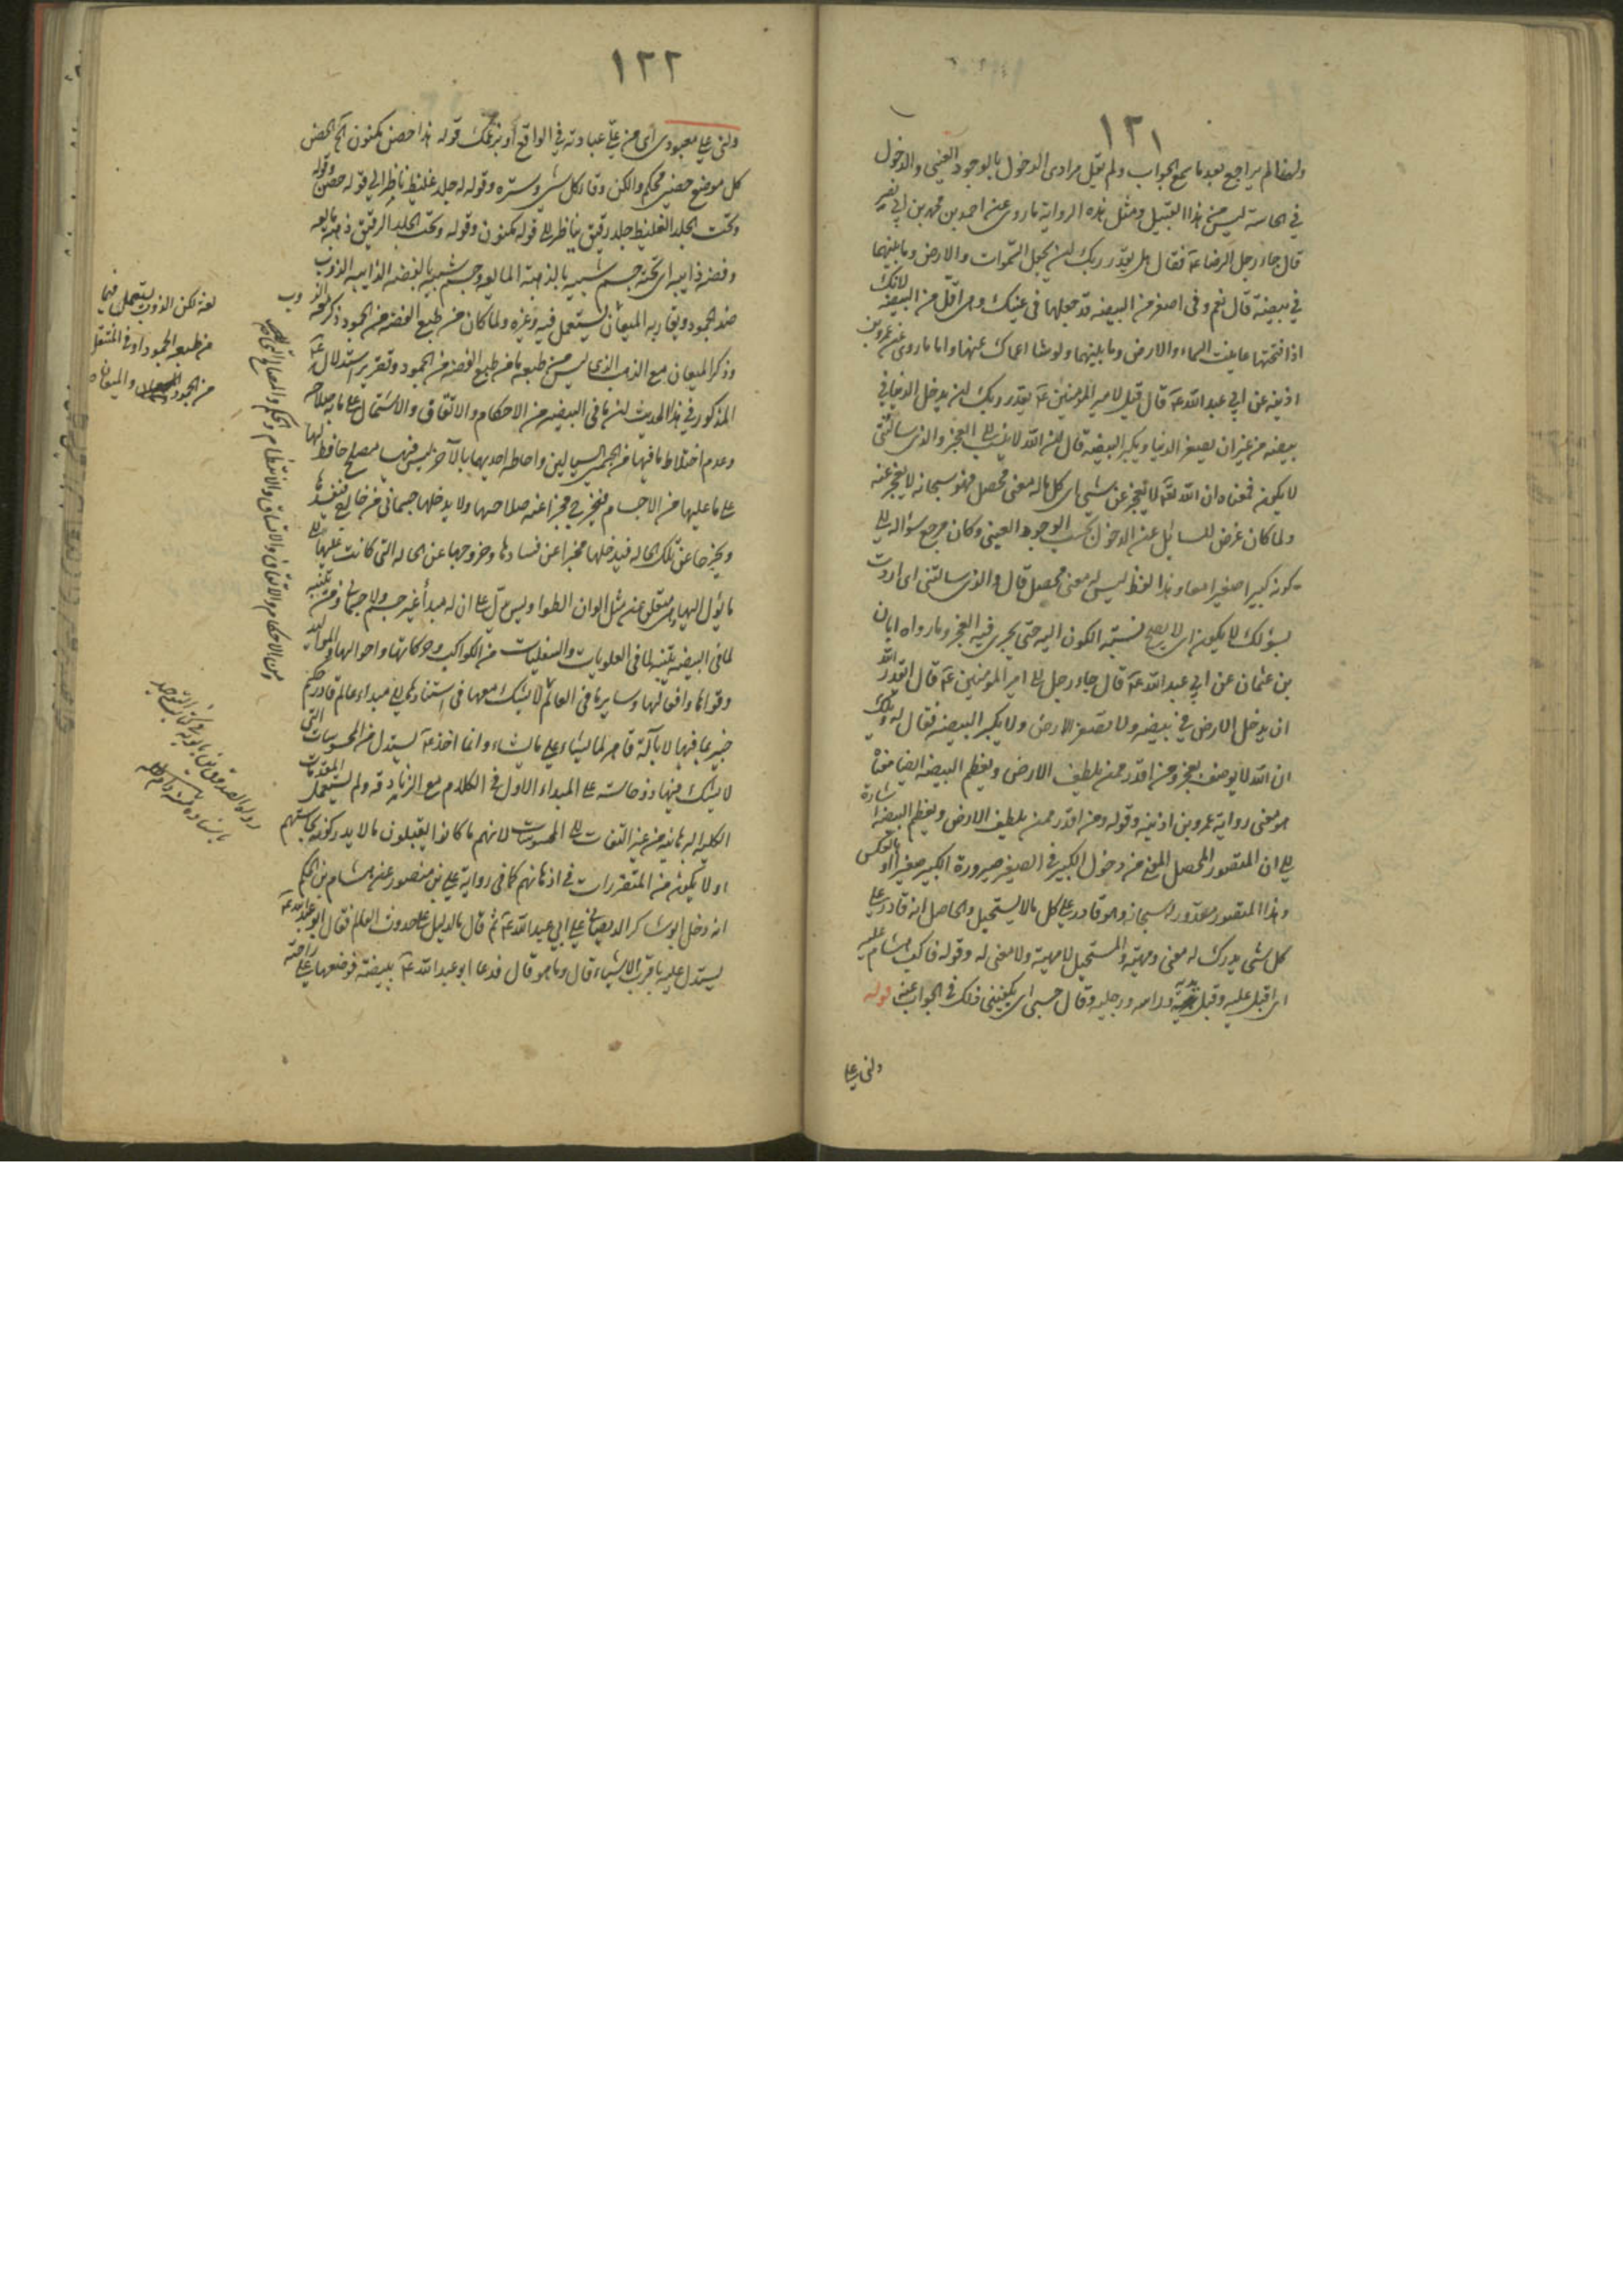 ١٢١
ولهذا لم يراجع بعد ما سمع الجواب ولم يقل مرادى الدخول بالوجود العينى والدخول
فى الحاسة ليس من هذا القبيل ومثل هذه الرواية ما روى عن احمد بن محمد بن ابى نصر
قال جاء رجل الرضا عه فقال هل يقدر ربك ان يجعل السموات والارض وما بينهما
فى بيضة قال نعم وفى اصغر من البيضة قد جعلها فى عينك وهى اقل من البيضة لانك
اذا فتحتها عاينت السماء والارض وما بينهما ولو شاء اعماك عنها واما ما روى عن عمر بن
اذينه عن ابى عبد الله عه قال قيل لامير المؤمنين عه يقدر ربك ان يدخل الدنيا فى
بيضة من غير ان يصغر الدنيا ويكبر البيضة قال ان الله لا ينسب الى العجز والذى سالتنى
لا يكون فمعناه ان الله تعه لا يعجز عن شىء اى كل ما له معنى محصل فهو سبحانه لا يعجز عنه
ولما كان غرض السائل عن الدخول بحسب الوجود العينى وكان مرجع سؤاله الى
كونه كبيرا صغيرا معا وهذا لفظ ليس له معنى محصل قال والذى سالتنى اى اردت
بسؤلك لا يكون اى لا يصح نسبة الكون اليه حتى يجرى فيه العجز وما رواه ابان
بن عثمان عن ابى عبد الله عه قال جاء رجل الى امير المؤمنين عه قال ايقدر الله
ان يدخل الارض فى بيضة ولا تصغر الارض ولا يكبر البيضة فقال له ويلك
ان الله لا يوصف بعجز ومن اقدر ممن يلطف الارض ويعظم البيضة ايضا معناه
هو معنى رواية عمر بن اذينه وقوله ومن اقدر ممن يلطف الارض ويعظم البيضة اشارة
الى ان المتصور المحصل المعنى من دخول الكبير فى الصغير صيرورة الكبير صغيرا او بالعكس
وهذا المتصور مقدور له سبحانه وهو قادر على كل ما لا يستحيل والحاصل انه قادر على
كل شىء يدرك له معنى ومهية والمستحيل لا مهية ولا معنى له وقوله فاكب هشام عليه
اى اقبل عليه وقبل يديه وراسه ورجليه وقال حسبى اى يكفينى ذلك فى الجواب عنه قوله
ولى على
١٢٢
ولى على معبودى اى من على عبادته فى الواقع او بزعمك قوله هذا حصن مكنون آه الحصن
كل موضع حصين محكم والكن وقاء كل شىء وستره وقوله له جلد غليظ ناظر الى قوله حصن وقوله
وتحت الجلد الغليظ جلد رقيق ناظر الى قوله مكنون وقوله وتحت الجلد الرقيق ذهبة مايعه
وفضة ذايبه اى تحته جسم شبيه بالذهبة المايعه وجسم شبيه بالفضة الذايبه الذوب
ضد الجمود ويقاربه الميعان يستعمل فيه وغيره ولما كان من طبع الفضة من الجمود ذكر معه الذوب
وذكر الميعان مع الذهب الذى ليس من طبعه ما من طبع الفضة من الجمود وتقرير استدلاله عه
المذكور فى هذا الحديث ان ما فى البيضة من الاحكام والاتقان والاشتمال على ما به صلاحها
وعدم اختلاط ما فيها من الجسمين السيالين واحاطة احديهما بالآخر ليس فيها مصلح حافظ لها
على ما عليها من الاجسام فيخرج مخبرا عنه صلاحها ولا يدخلها جسمانى من خارج فيفسدها
ويخرجها عن تلك الحاله فيدخلها مخبرا عن فسادها وخروجها عن الحاله التى كانت عليها الى
ما يؤل اليها وينفلق عن مثل الوان الطواويس يدل على ان له مبدأ غير جسم ولا جسمانى ومن تنبه
لما فى البيضة تنبه لما فى العلويات والسفليات من الكواكب وحركاتها واحوالها والمواليد
وقواها وافعالها وسايرها فى العالم لا يشك معها فى استنادها الى مبداء عالم قادر حكيم
خبير بما فيها لا بآلة قاهر لما يشاء على ما يشاء وانما اخذ عه يستدل من المحسوسات التى
لا يشك فيها ذو حاسة على المبداء الاول فى الكلام مع الزنادقه ولم يستعمل المقدمات
الكليه البرهانيه من غير التفات الى المحسوسات لانهم ما كانوا يقبلون ما لا يدركونه بحاستهم
او لا يكون من المتقررات فى اذهانهم كما فى رواية على بن منصور عن هشام بن الحكم
انه دخل ابو شاكر الديصانى على ابى عبد الله عه ثم قال ما الدليل على حدوث العالم فقال ابو عبد الله عه
يستدل عليه باقرب الاشياء قال وما هو قال فدعا ابو عبد الله عه ببيضة فوضعها على راحته
لغة لكن الذوب يستعمل فيما
من طبعه الجمود او فى المنتقل
من الجمود والميعان
من الاحكام والاتقان والاتساق والانتظام والحكم والمصالح التى
رواه الصدوق بن بابويه فى كتاب التوحيد
باسناده